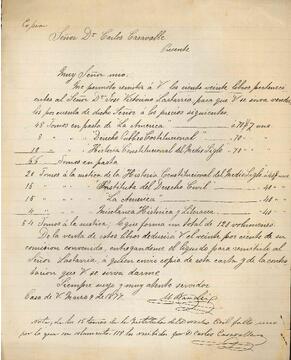 Copia
Señor Dr Carlos Casavalle
Presente
Muy Señor mio:
Me permito remitir á V los ciento veinte libros pertenec
ientes al Señor Dr José Victorino Lastarria para que V se sirva vender
los por cuenta de dicho Señor á los precios siguientes.
48 Tomos en pasta de La America uno
8 " " " Derecho Público Constitucional " 70 "
10 " " Historia Constitucional del Medio Siglo " 70 "
66 Tomos en pasta
20 Tomos á la rústica de la Historia Constitucional del Medio Siglo
15 " " Instituta del Derecho Civil " 40 "
15 " " La America " 40 "
4 " " Miscelanea Historica y Literaria " 40 "
54 Tomos á la rústica, que forma un total de 120 volúmenes.
De la venta de estos libros deducirá V el veinte por ciento de su
comision convenida, entregandome el líquido para remitirlo al
Señor Lastarria, á quien envio copia de esta carta y de la contes
tacion que V se sirva darme.
Siempre suyo y muy atento servidor
Casa de V Marzo 9 de 1877.
Nota, de los 15 tomos de la Instituta del Derecho Civil falta uno
por lo que son volumenes 119 los recibidos por Carlos Casavalle